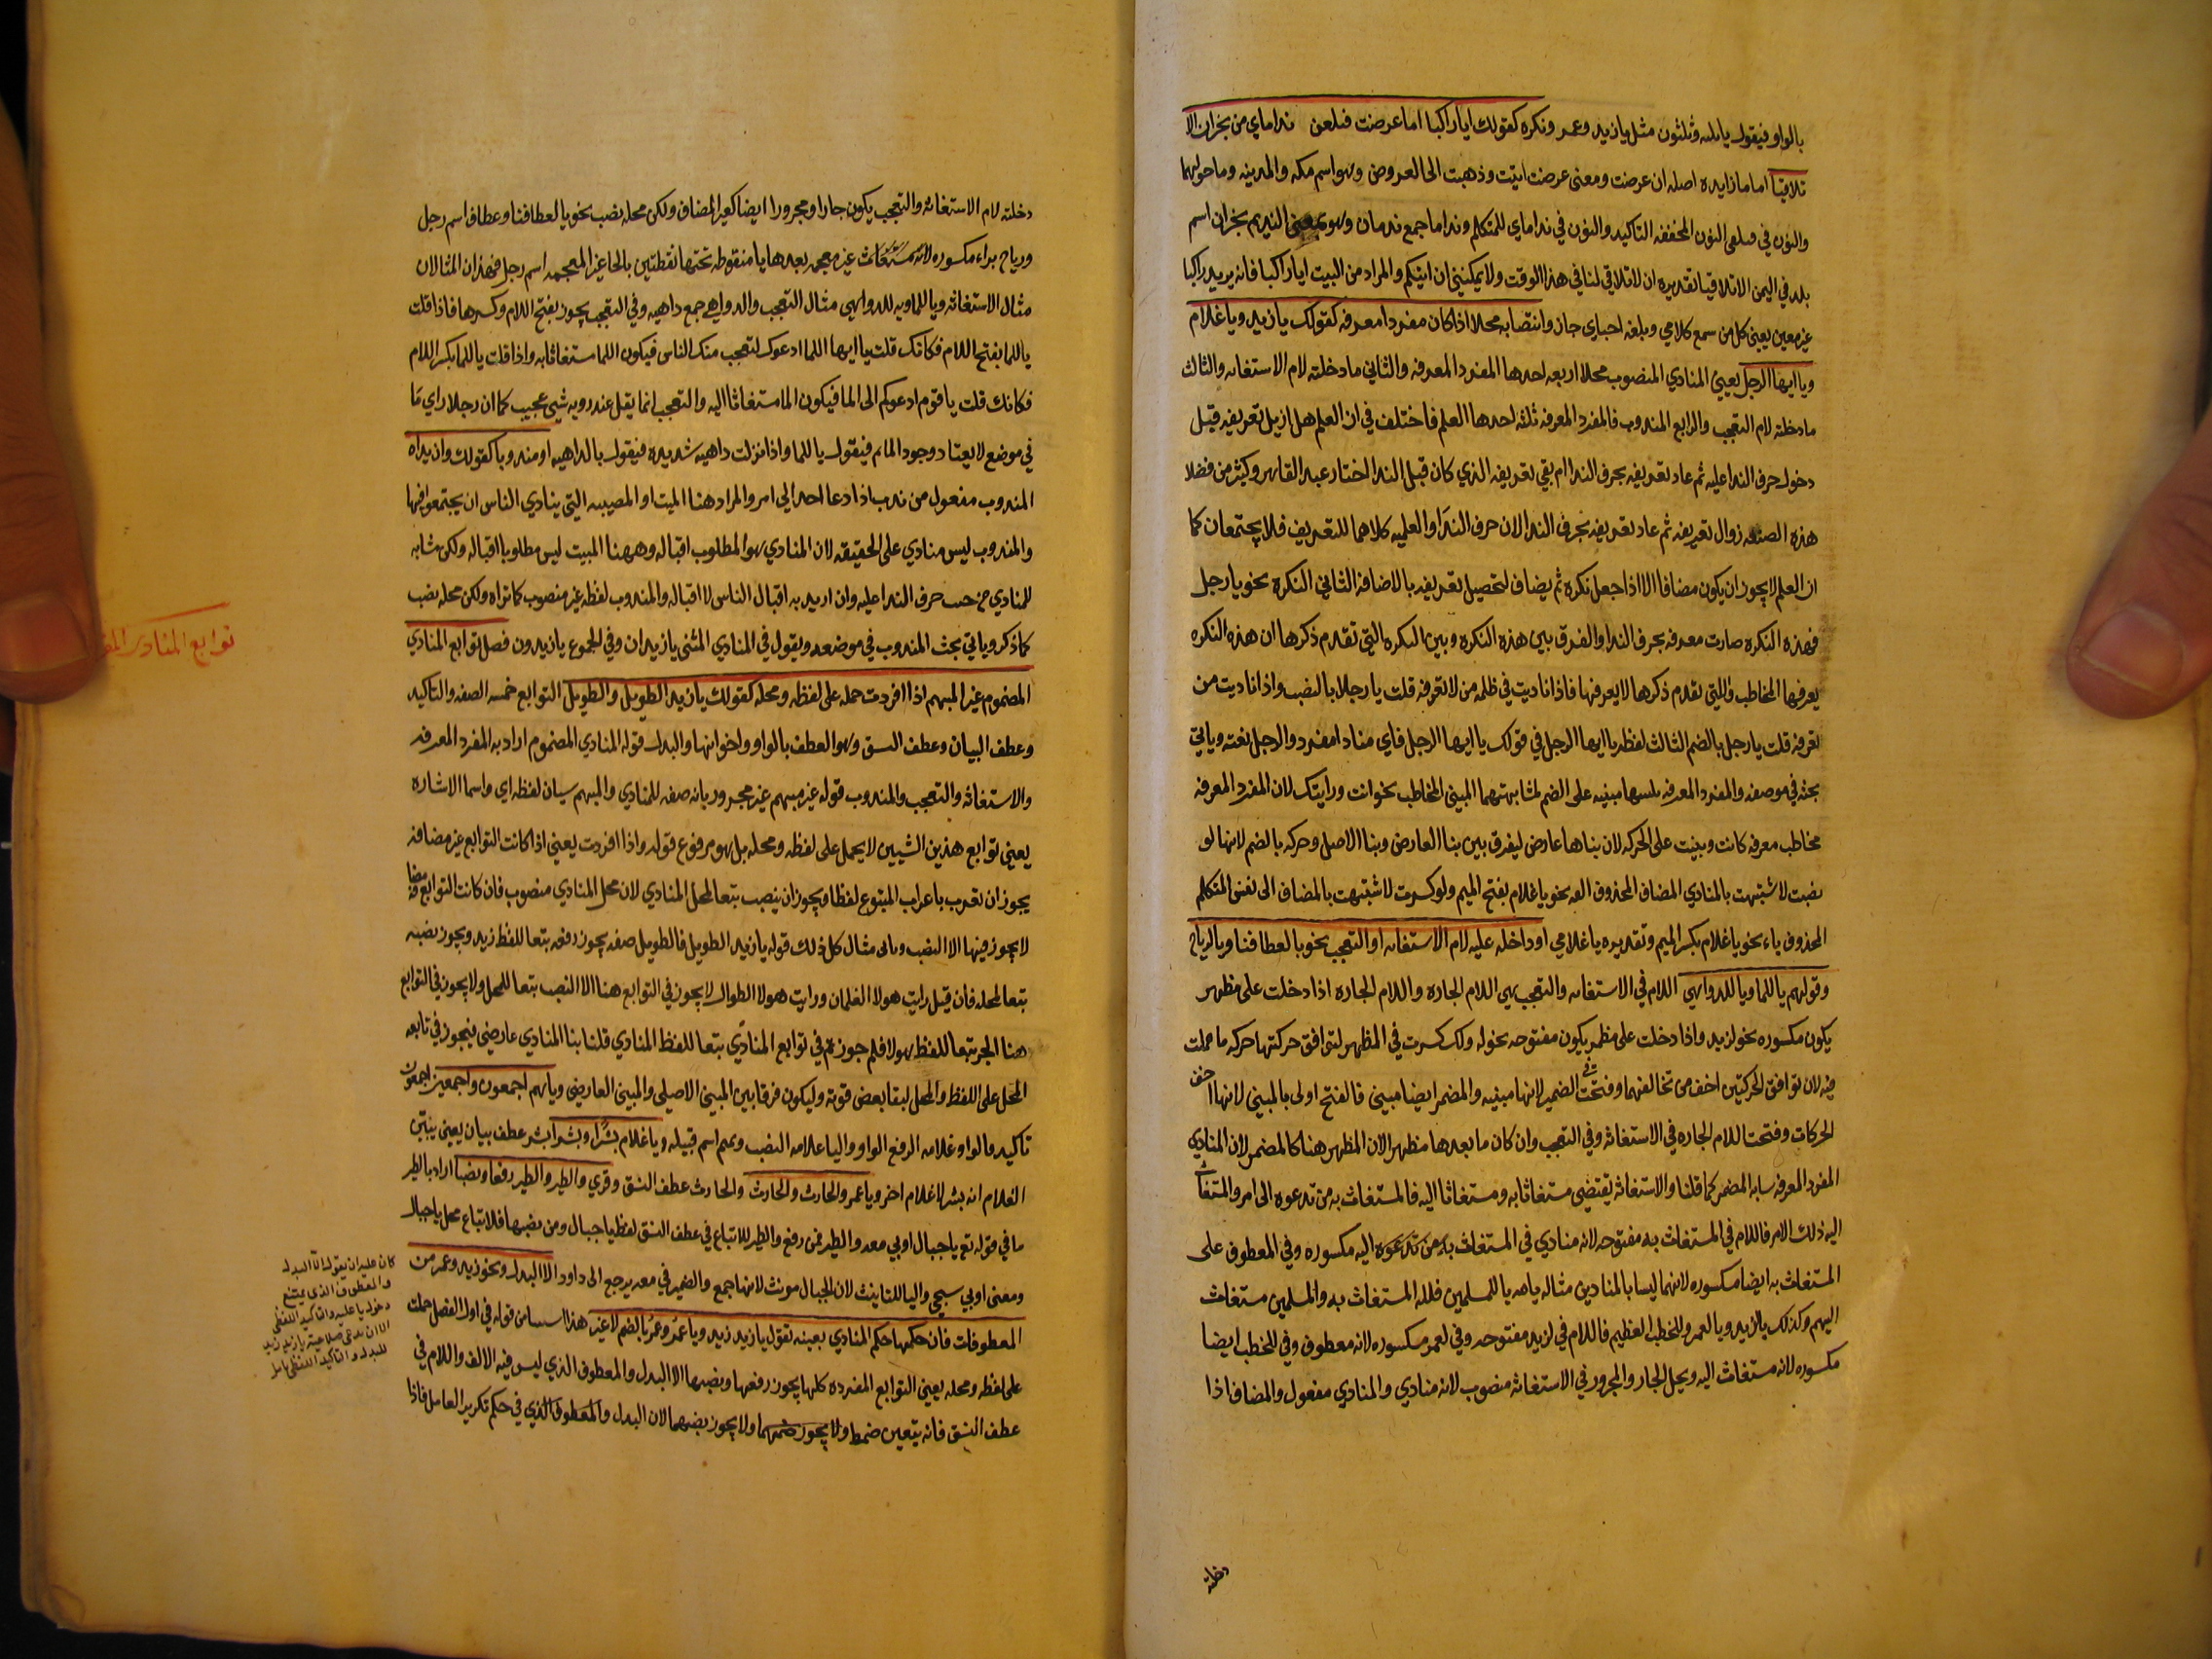 بالواو فيقول يا ثلثه وثلثون مثل يا زيد وعمر ونكره كقولك ايا راكبا اما عرضت فبلغن نداماي من نجران الا
تلاقيا اما ما زايده اصله ان عرضت ومعنى عرضت اتيت وذهبت الى العروض وهو اسم مكه والمدينه وما حولهما
والنون في فبلغن النون المخففه التاكيد والنون في نداماي للمتكلم وندا ما جمع ندمان وهو بمعنى النديم نجران اسم
بلد في اليمن الا تلاقيا تقديره ان لا تلاقي لنا في هذا الوقت ولا يمكنني ان اتيكم والمراد من البيت ايا راكبا فانه يريد راكبا
غير معين يعني كل من سمع كلامي وبلغه احبابي جاز وانتصابه محلا اذا كان مفردا معرفه كقولك يا زيد ويا غلام
ويا ايها الرجل يعني المنادي المنصوب محلا اربعه احدها المفرد المعرفه والثاني ما دخلته لام الاستغاثه والثالث
ما دخلته لام التعجب والرابع المندوب فالمفرد المعرفه ثلثه احدها العلم فاختلف في ان العلم هل ازيل تعريفه قبل
دخول حرف الندا عليه ثم عاد تعريفه بحرف الندا ام بقي تعريفه الذي كان قبل الندا اختار عبد القاهر وكثير من فضلا
هذه الصنعه زوال تعريفه ثم عاد تعريفه بحرف الندا لان حرف الندا والعلميه كلاهما للتعريف فلا يجتمعان كما
ان العلم لا يجوز ان يكون مضافا الا اذا جعل نكره ثم يضاف لتحصيل تعريفه بالاضافه الثاني النكره نحو يا رجل
فهذه النكره صارت معرفه بحرف الندا والفرق بين هذه النكره وبين النكره التي تقدم ذكرها ان هذه النكره
يعرفها المخاطب والتي تقدم ذكرها لا يعرفها فاذا ناديت في ظلمه من لا تعرفه قلت يا رجلا بالنصب واذا ناديت من
تعرفه قلت يا رجل بالضم الثالث لفظ يا ايها الرجل في قولك يا ايها الرجل فاي منادا مفرد والرجل نعته وياتي
بحثه في موضعه والمفرد المعرفه مبنيه على الضم لمشابهتهما المبني المخاطب نحو انت ورايتك لان المفرد المعرفه
مخاطب معرفه كانت وبنيت على الحركه لان بناها عارض ليفرق بين بنا العارض وبنا الاصل وحركه بالضم لانها لو
نصبت لاشتبهت بالمنادي المضاف المحذوف الفه نحو يا غلام بفتح الميم ولو كسرت لاشتبهت بالمضاف الى نفس المتكلم
المحذوف ياءه نحو يا غلام بكسر الميم وتقديره يا غلامي او داخله عليه لام الاستغاثه او التعجب نحو يا لعطافنا ويا لرياح
وقولهم يا للما ويا للدواهي اللام في الاستغاثه والتعجب هي اللام الجاره واللام الجاره اذا دخلت على مظهر
يكون مكسوره نحو لزيد واذا دخلت على مظمر يكون مفتوحه نحو له ولك كسرت في المظهر لتوافق حركتها حركه ما عملت
فيه لان توافق الحركتين اخف من تخالفهما وفتحت في الضمير لانها مبنيه والمضمر ايضا مبني فالفتح اولى بالمبني لانها اخف
الحركات وفتحت اللام الجاره في الاستغاثه وفي التعجب وان كان ما بعدها مظهرا لان المظهر هنا كالمضمر لان المنادي
المفرد المعرفه شابه المضمر كما قلنا والاستغاثه يقتضي مستغاثا به ومستغاثا اليه فالمستغاث به من تدعوه الى امر والمستغاث
اليه ذلك الامر فاللام في المستغاث به مفتوحه لانه منادي في المستغاث به من تدعوه اليه مكسوره وفي المعطوف على
المستغاث به ايضا مكسوره لانهما ليسا بالمنادين مثاله يا لله يا للمسلمين فلله المستغاث به والمسلمين مستغاث
اليهم وكذلك يا لزيد ويا لعمر وللخطب العظيم فاللام في لزيد مفتوحه وفي لعمر مكسوره لانه معطوف وفي للخطب ايضا
مكسوره لانه مستغاث اليه ويحل الجار والمجرور في الاستغاثه منصوب لانه منادي والمنادي مفعول والمضاف اذا
دخلته
دخلته لام الاستغاثه والتعجب يكون جارا ومجرورا ايضا كغير المضاف ولكن محله نصب نحو يا لعطافنا وعطاف اسم رجل
ورياح براء مكسوره لانه مستغاث غير معجمه بعدها يا منقوطه تحتها نقطتين بالحا غير المعجمه اسم رجل فهذان المثالان
مثال الاستغاثه ويا للما ويه للدواهي مثال التعجب والدواهي جمع داهيه وفي التعجب يجوز بفتح اللام وكسرها فاذا قلت
يا للما بفتح اللام فكانك قلت يا ايها اللما ادعوك لتعجب منك الناس فيكون اللما مستغاثا به واذا قلت يا للما بكسر اللام
فكانك قلت يا قوم ادعوكم الى الما فيكون الما مستغاثا اليه والتعجب انما يقل عند رويه شي عجيب كما ان رجلا راي ما
في موضع لا يعتاد وجود الما ثم فيقول يا للما واذا نزلت داهيه شديده فيقول يا لداهيه او مندوبا كقولك وا زيداه
المندوب مفعول من ندب اذا دعا احدا الى امر والمراد هنا الميت او المصيبه التي ينادي الناس ان يجتمعوا فيها
والمندوب ليس منادي على الحقيقه لان المنادي هو المطلوب اقباله وههنا الميت ليس مطلوبا اقباله ولكن مشابه
للمنادي من حيث حرف الندا عليه وان اريد به اقبال الناس لا اقباله والمندوب لفظه غير منصوب كما تراه ولكن محله نصب
كما ذكر وياتي بحث المندوب في موضعه ويقول في المنادي المثنى يا زيدان وفي المجموع يا زيدون فصل توابع المنادي
المضموم غير المبهم اذا افردت حمله على لفظه ومحله كقولك يا زيد الطويل والطويل التوابع خمسه الصفه والتاكيد
وعطف البيان وعطف النسق وهو العطف بالواو واخواتها والبدل قوله المنادي المضموم اراد به المفرد المعرفه
والاستغاثه والتعجب والمندوب قوله غير مبهم غير مجرور بانه صفه للمنادي والمبهم سيان لفظه اي واسما الاشاره
يعني توابع هذين الشيين لا يحمل على لفظه ومحله بل هو مرفوع قوله واذا افردت يعني اذا كانت التوابع غير مضافه
يجوز ان تعرب باعراب المتبوع لفظا ويجوز ان ينصب تبعا لمحل المنادي لان محل المنادي منصوب فان كانت التوابع مضافه
لا يجوز فيها الا النصب وياتي مثال كل ذلك قوله يا زيد الطويل فالطويل صفه يجوز رفعه تبعا للفظ زيد ويجوز نصبه
تبعا لمحله فان قيل رايت هولا الغلمان ورايت هولا الطوال لا يجوز في التوابع هنا الا النصب تبعا للمحل ولا يجوز في التوابع
هنا الجر تبعا للفظ هولا فلم جوزتم في توابع المنادي تبعا للفظ المنادي قلنا بنا المنادي عارضي فيجوز في تابعه
الحمل على اللفظ والمحل لبقا بعض قوته وليكون فرقا بين المبني الاصلي والمبني العارضي ويا تيم اجمعون واجمعين اجمعون
تاكيد فالواو علامه الرفع الواو واليا علامه النصب وتميم اسم قبيله ويا غلام بشر او بشرا بشر عطف بيان يعني يبين
الغلام انه بشر لا غلام اخر ويا عمر والحارث والحارث والحارث عطف النسق وقري والطير والطير رفعا ونصبا اراد بالطير
ما في قوله تع يا جبال اوبي معه والطير فمن رفع والطير للاتباع في عطف النسق لفظ يا جبال ومن نصبها فلاتباع محل يا جبال
ومعنى اوبي سبحي واليا للتانيث لان الجبال مونث لانها جمع والضمير في معه يرجع الى داود الا البدل ونحو زيد وعمر من
المعطوفات فان حكمها حكم المنادي بعينه تقول يا زيد زيد ويا عمر وعمر بالضم لا غير هذا استثنا من قوله في اول الفصل حملت
على لفظه ومحله يعني التوابع المفرده كلها يجوز رفعها ونصبها الا البدل والمعطوف الذي ليس فيه الالف واللام في
عطف النسق فانه يتعين ضمها ولا يجوز ضمهما ولا يجوز نصبهما لان البدل والمعطوف الذي في حكم تكرير العامل فاذا
توابع المنادى
كان عليه ان يقول الا البدل
والمعطوف الذي يمتنع
دخول يا عليه والتاكيد اللفظي